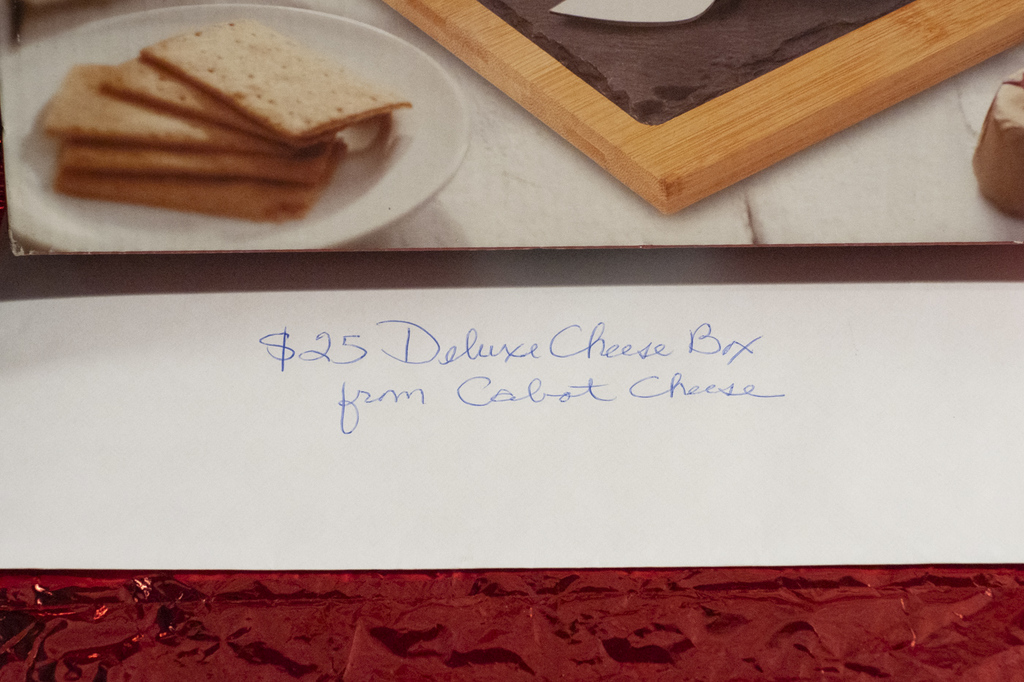 $25 Deluxe Cheese Box
from Cabot Cheese